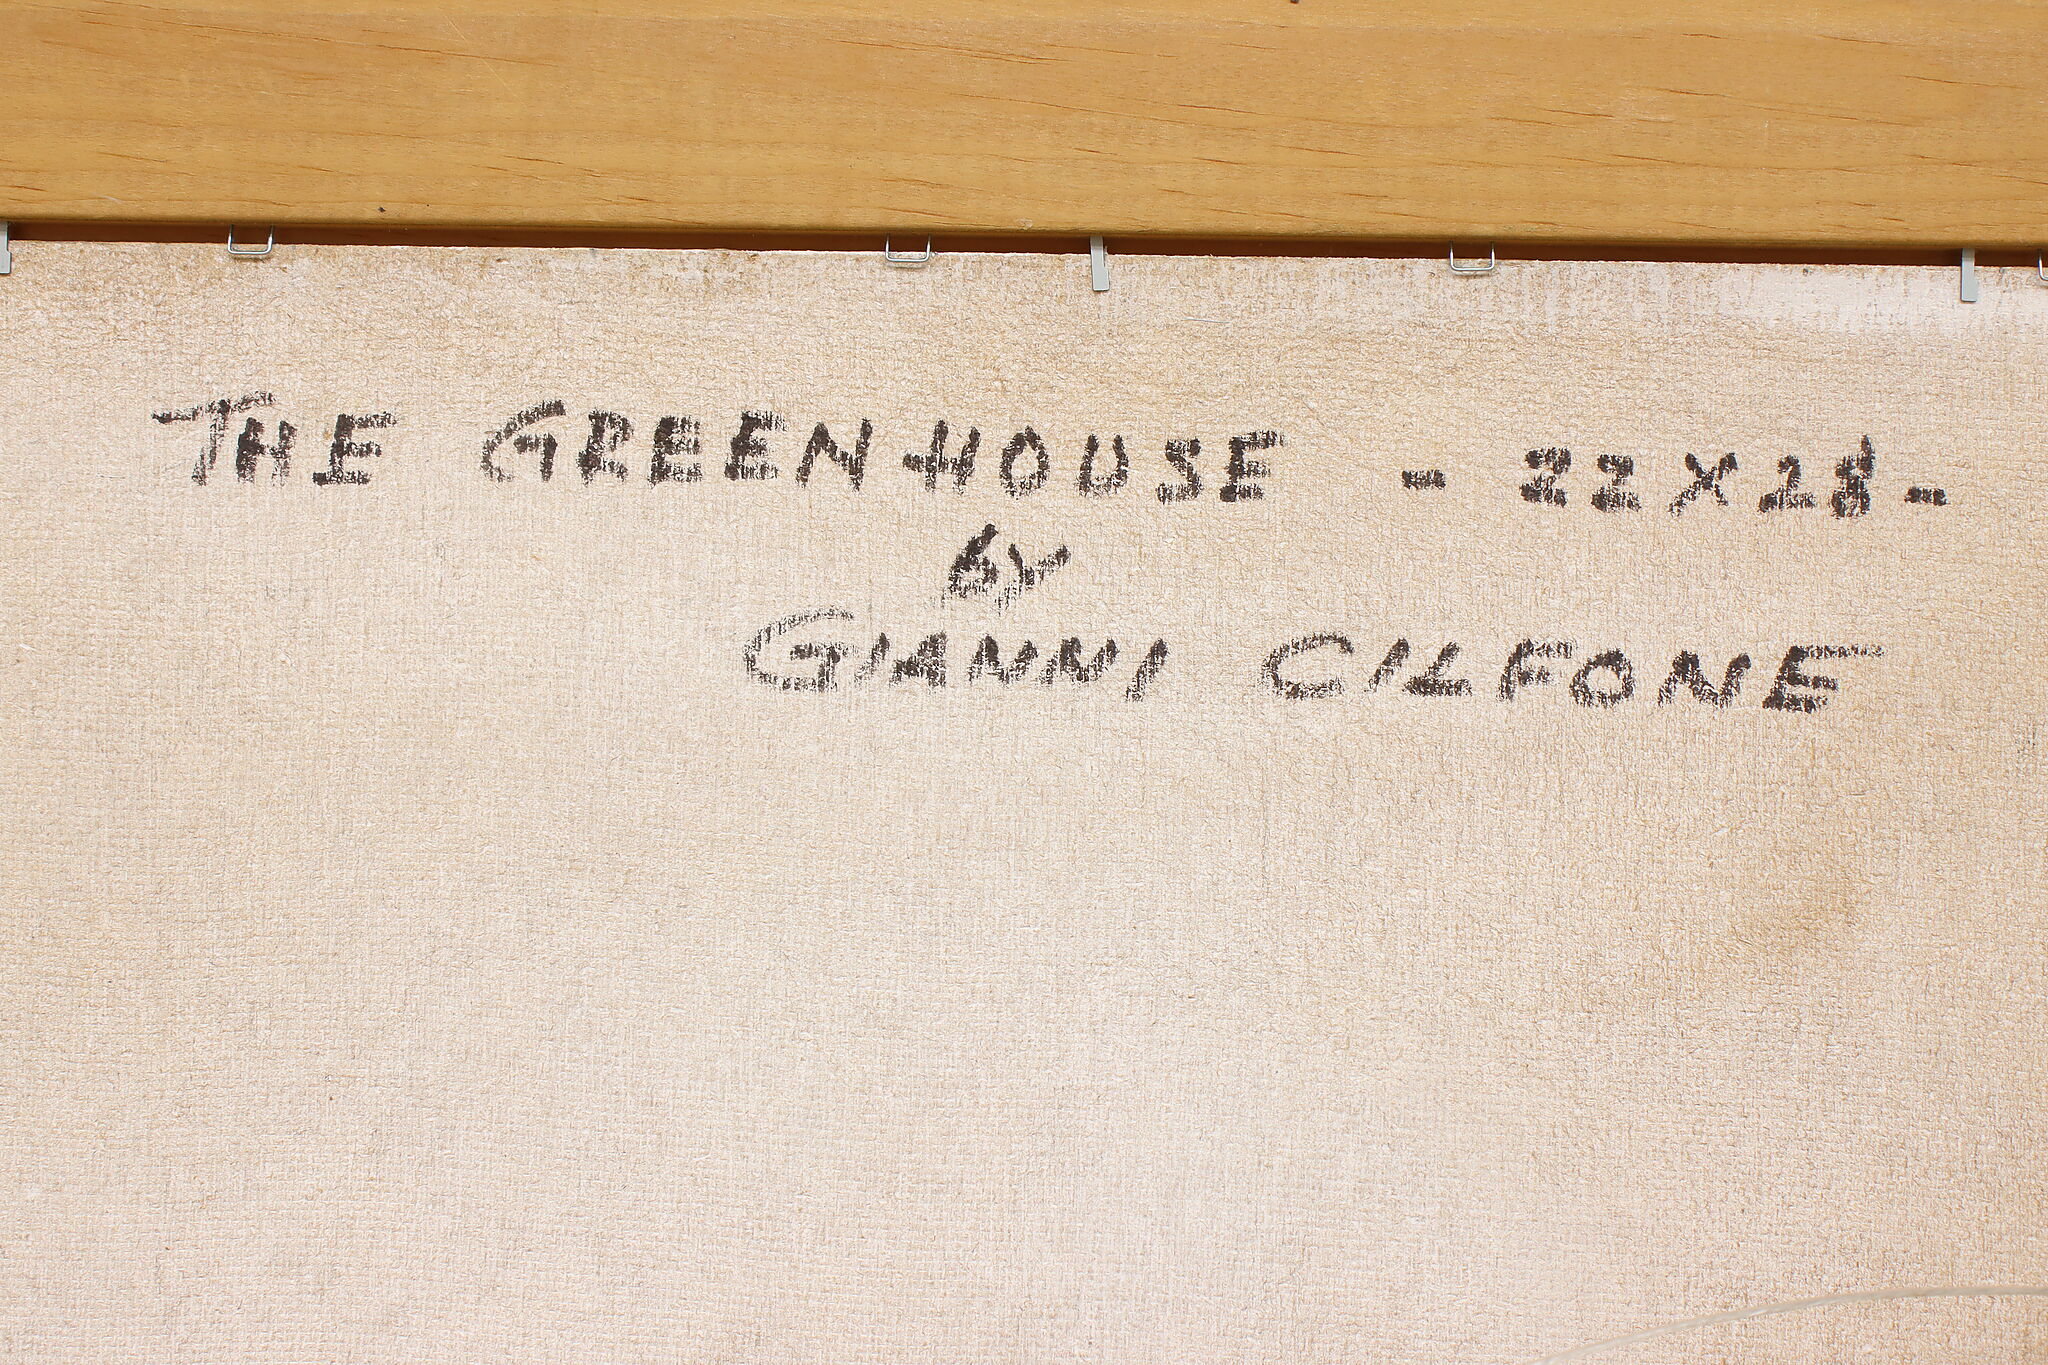 THE GREENHOUSE - 22X28-
by
GIANNI CILFONE